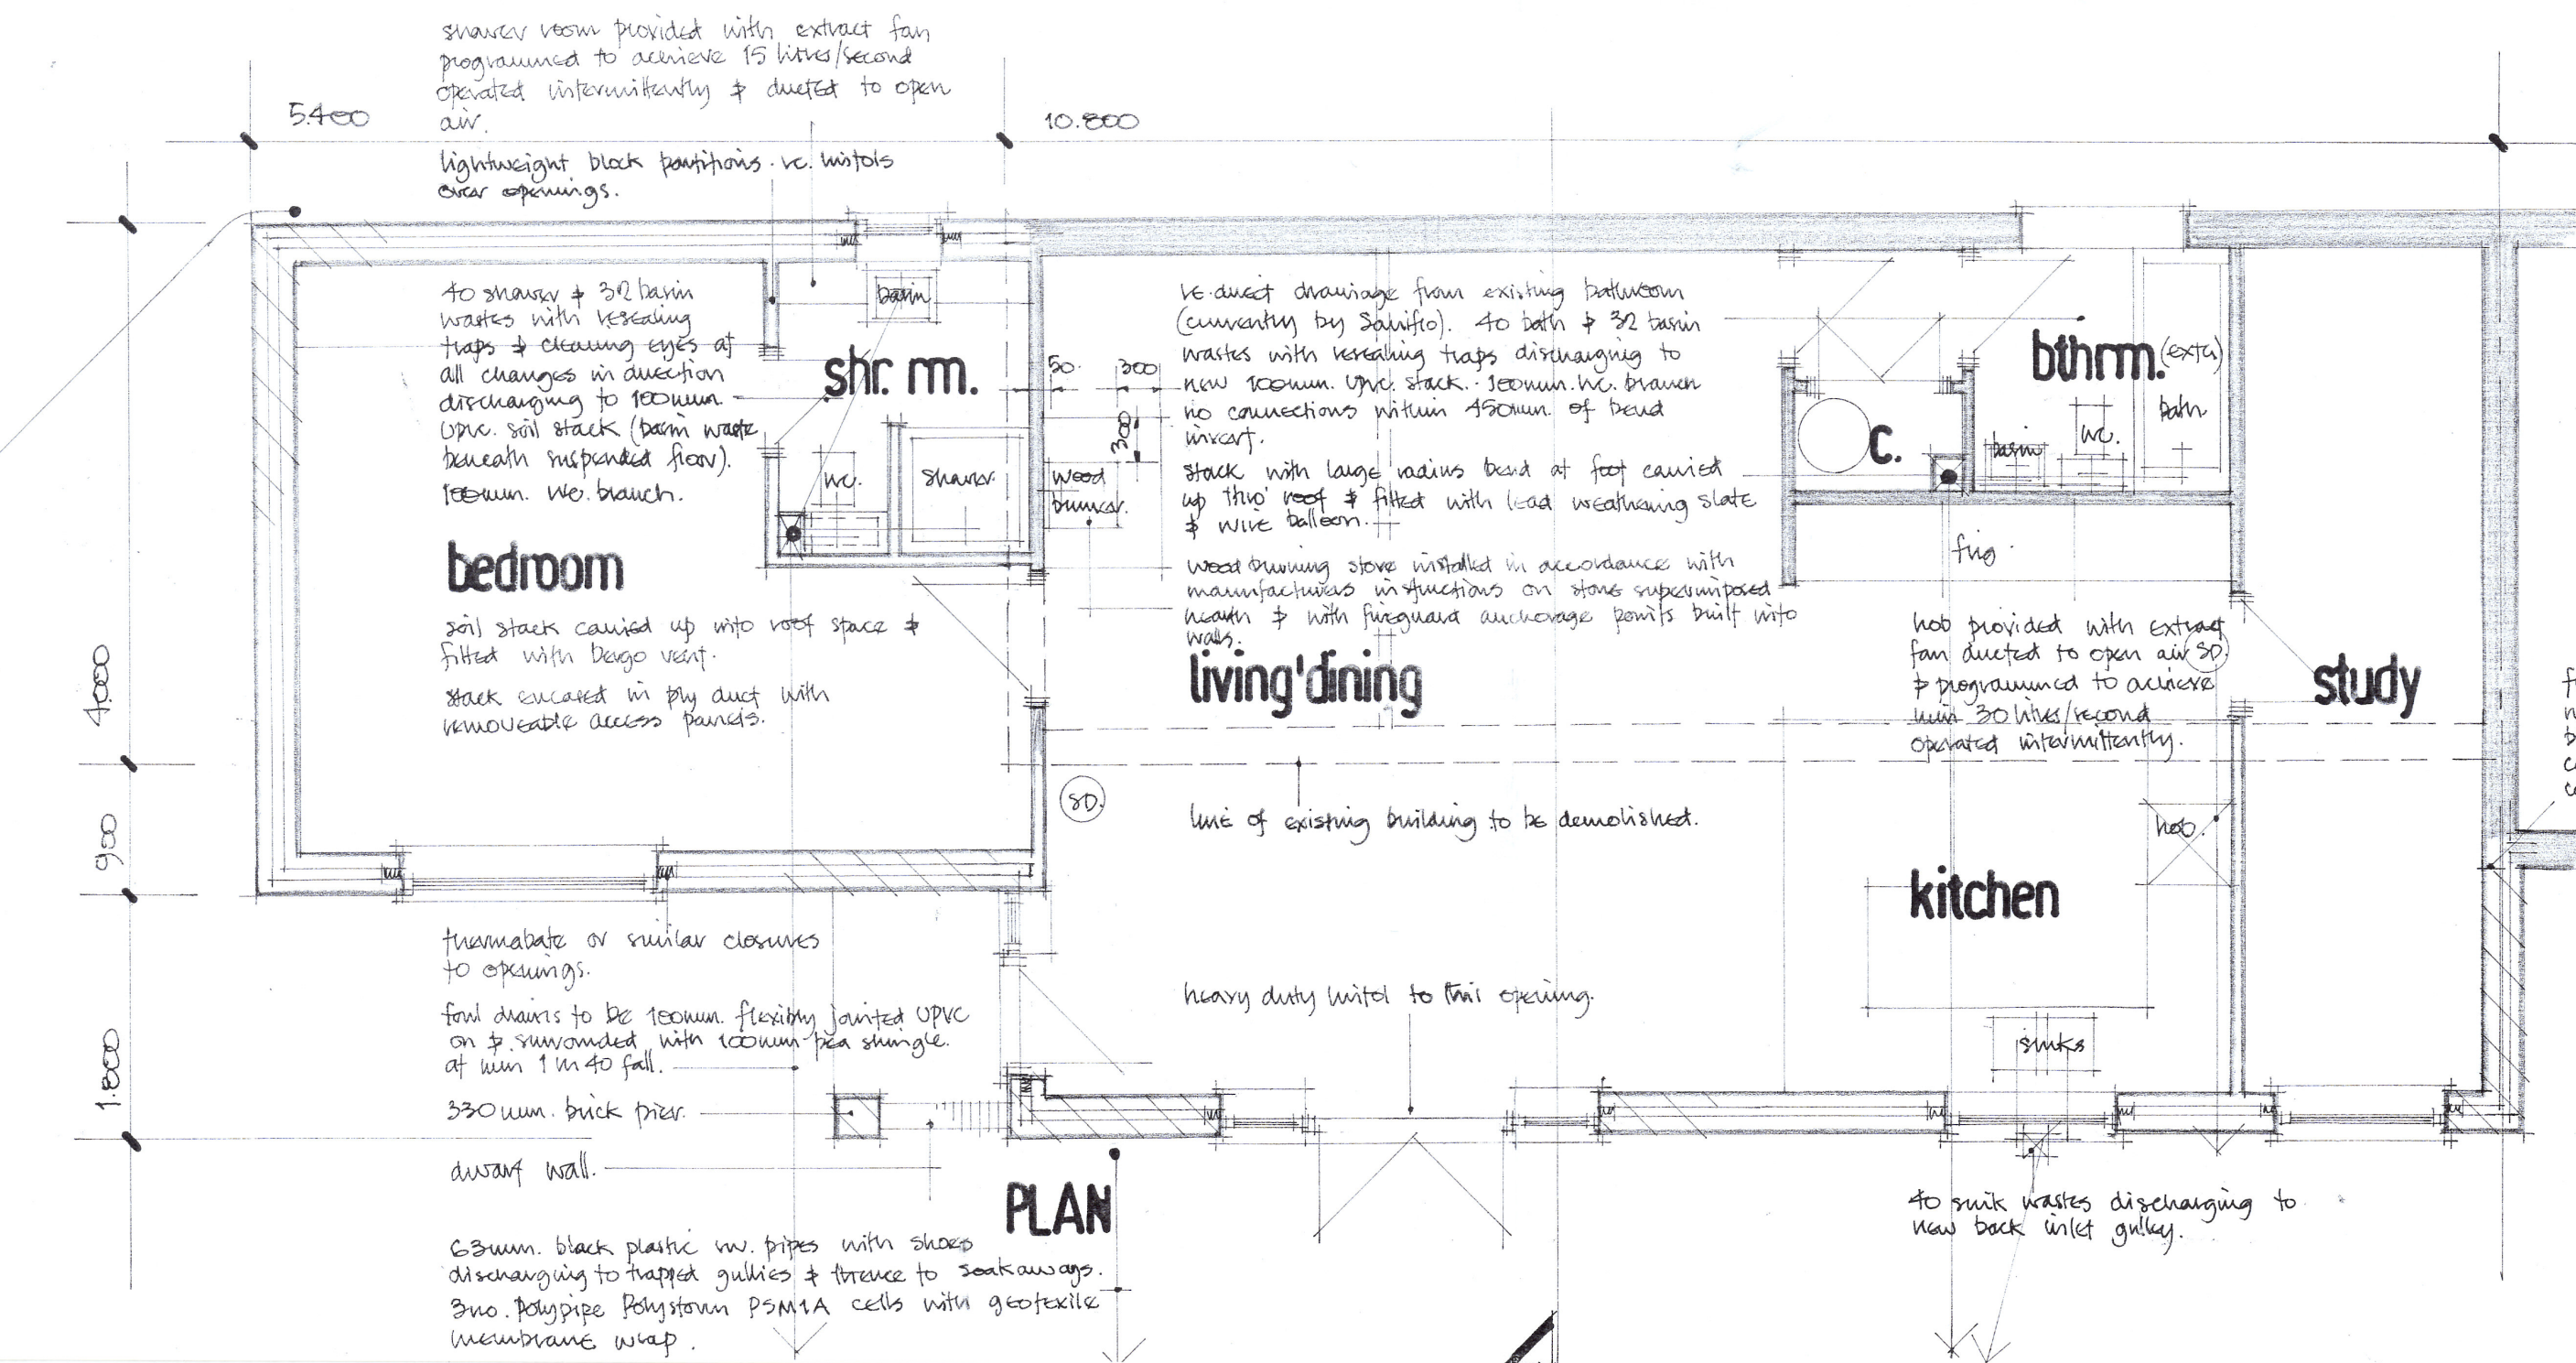 shower room provided with extract fan
programmed to achieve 15 litres/second
operated intermittently & ducted to open
air.
5.400
10.800
lightweight block partitions. rc. lintols
over openings.
40 shower & 32 basin
wastes with resealing
traps & cleaning eyes at
all changes in direction
discharging to 100mm.
upvc. soil stack (basin waste
beneath suspended floor).
100mm. wc. branch.
basin
shr. rm.
wc.
shower.
bedroom
soil stack carried up into roof space &
fitted with Durgo vent.
stack encased in ply duct with
removeable access panels.
50.
300
300
wood
burner.
re.direct drainage from existing bathroom
(currently by Saniflo). 40 bath & 32 basin
wastes with resealing traps discharging to
new 100mm. upvc. stack. 100mm. wc. branch
no connections within 450mm. of bend
invert.
stack with large radius bend at foot carried
up thro' roof & fitted with lead weathering slate
& wire balloon.
wood burning stove installed in accordance with
manufacturers instructions on stone superimposed
hearth & with fireguard anchorage points built into
walls.
living'dining
c.
bthrm.
(exts)
basin
wc.
bath
frig.
hob provided with extract
fan ducted to open air
& programmed to achieve
min 30 litres/second
operated intermittently.
SD.
study
4.000
900
1.800
SD.
line of existing building to be demolished.
hob.
kitchen
thermabate or similar closures
to openings.
foul drains to be 100mm. flexibly jointed UPVC
on & surrounded with 100mm pea shingle.
at min 1 in 40 fall.
heavy duty lintol to this opening.
sinks
330mm. brick pier.
dwarf wall.
PLAN
63mm. black plastic rw. pipes with shoes
discharging to trapped gullies & thence to soakaways.
3no. Polypipe Polystorm PSM1A cells with geotexile
membrane wrap.
40 sink wastes discharging to
new back inlet gulley.